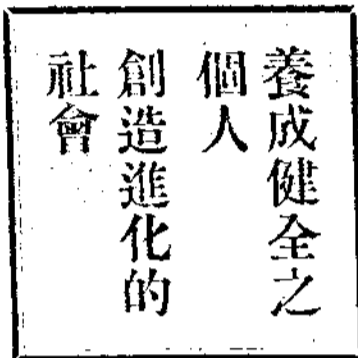 養成健全之
個人
創造進化的
社會